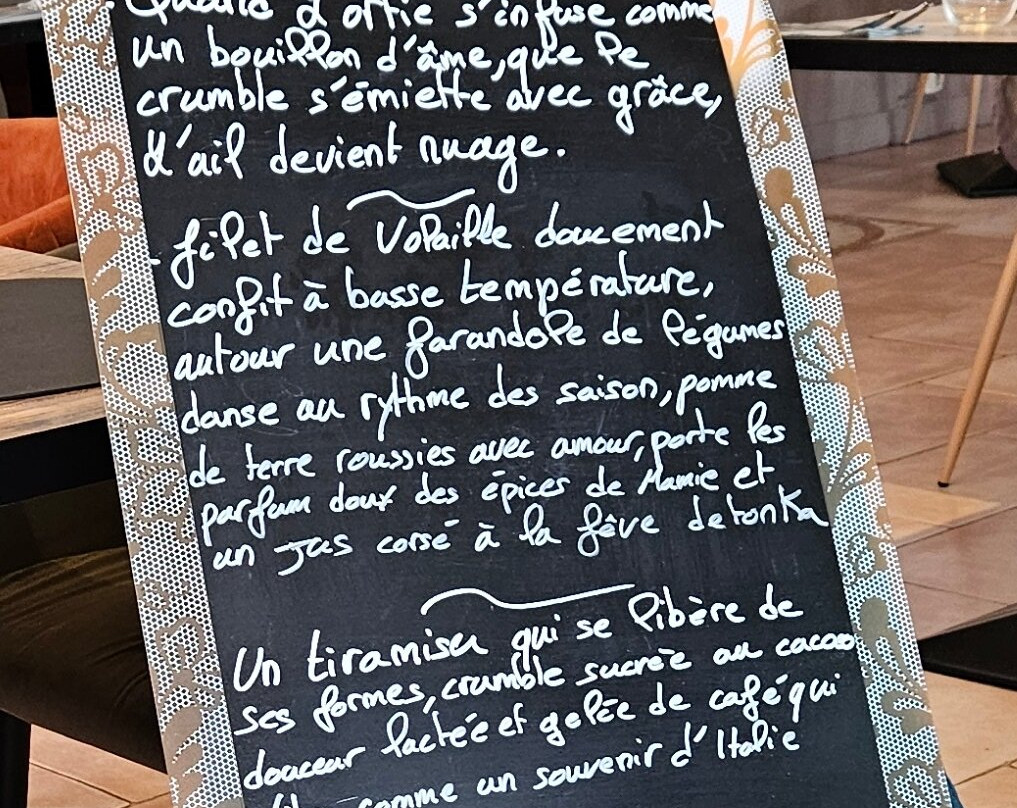 Quand l'ortie s'infuse comme
un bouillon d'âme, que le
crumble s'émiette avec grâce,
l'ail devient nuage.
- filet de Volaille doucement
confit à basse température,
autour une farandole de légumes
danse au rythme des saison, pomme
de terre roussies avec amour, porte les
parfum doux des épices de Mamie et
un jus corsé à la fêve de tonka
Un tiramisu qui se libère de
ses formes, crumble sucrée au cacao
douceur lactée et gelée de café qui
comme un souvenir d'Italie